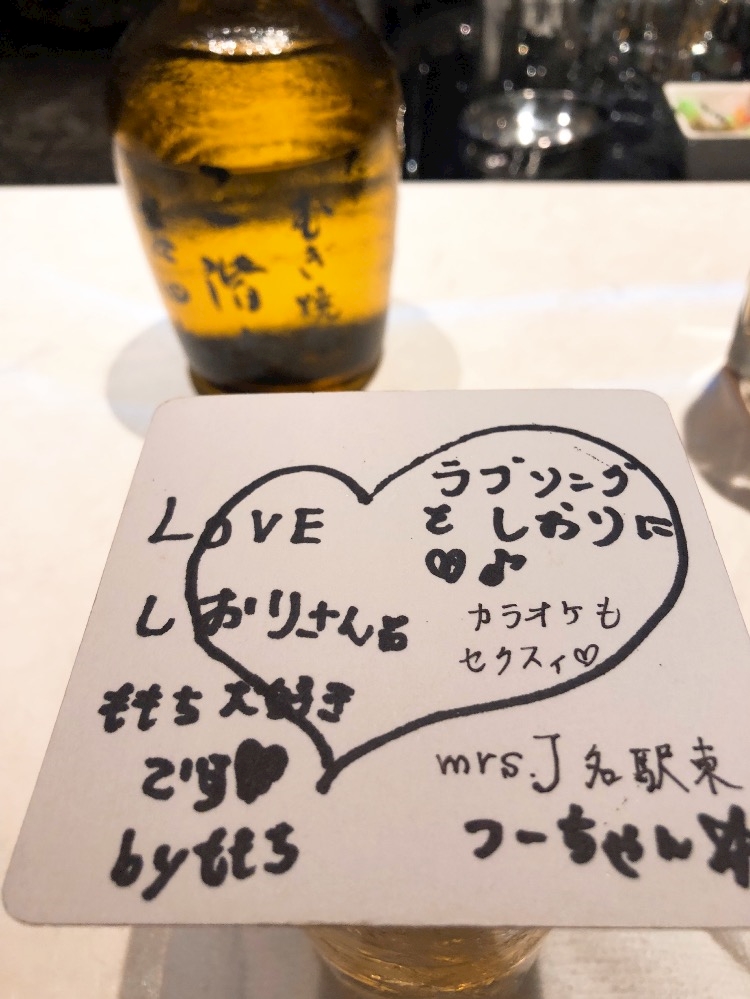 二階堂
むぎ焼
LOVE
しおりさん
ももち大好き
です♥
byももち
ラブソング
を しおりに
♡♪
カラオケも
セクスィ♡
mrs.J 名駅東
つーちゃん